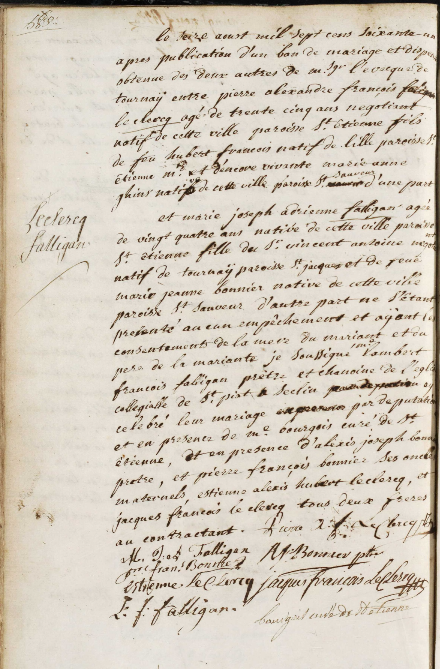 Le seize aoust mil sept cens soixante un
apres publication d'un ban de mariage et dispense
obtenue des deux autres de m. gr l'eveque de
tournay entre pierre alexandre françois
le clercq agé de trente cinq ans negotiant
natif de cette ville paroisse St. Etienne fils
de feu hubert francois natif de lille paroisse St.
Etienne et d'encore vivante marie anne
ghins native de cette ville paroisse St. Sauveur d'une part
et marie joseph adrienne falligan agée
de vingt quatre ans native de cette ville paroisse
St etienne fille du Sr. vincent antoine
natif de tournay paroisse St. jacques et de feue
marie jeanne bonnier native de cette ville
paroisse St Sauveur d'autre part ne s'étant
presenté aucun empêchement et ayant les
consentements de la mere du mariant et du
pere de la mariante je soussigné lambert
françois falligan prêtre et chanoine de l'eglise
collegialle de St. piat a seclin ay
celebré leur mariage par deputation
et en presence de me. bourgois curé de St
Etienne, et en presence d'alexis joseph bonnier
prêtre, et pierre françois bonnier ses oncles
maternels, estienne alexis hubert leclercq, et
jacques francois le clercq tous deux freres
au contractant.
Leclercq
falligan
M. J. A. Falligan
pre. fran. Bonnier
A. J. Bonnier ptre
Estienne Le Clercq
jacques francois Leclercq
L. f. falligan
bourgois curé de St etienne